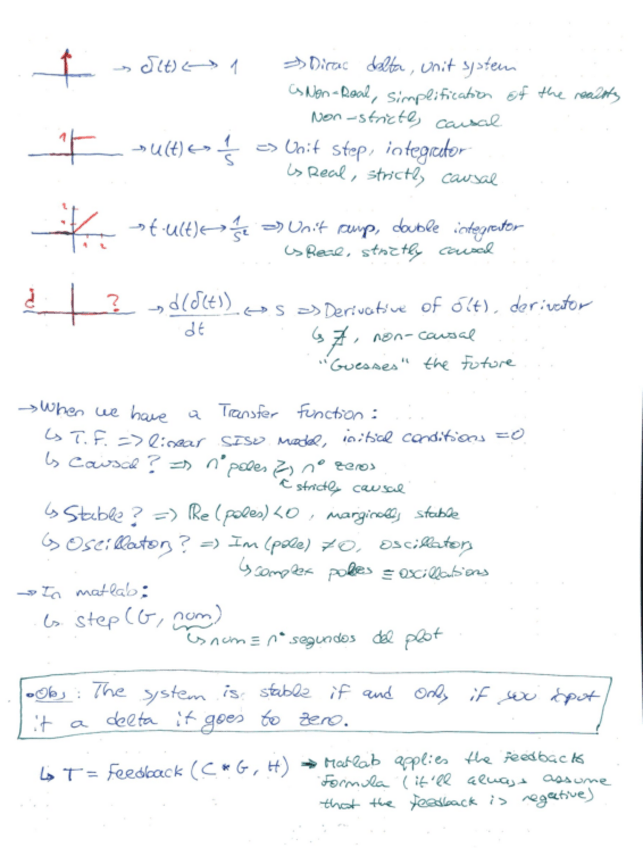 → δ(t) ↔ 1 ⇒ Dirac delta, unit system
↳ Non-Real, simplification of the reality
Non-strictly causal
1 → u(t) ↔ 1/s ⇒ Unit step, integrator
↳ Real, strictly causal
2 1 1 2 → t·u(t) ↔ 1/s² ⇒ Unit ramp, double integrator
↳ Real, strictly causal
¿ ? → d(δ(t))/dt ↔ s ⇒ Derivative of δ(t), derivator
↳ ∄, non-causal
"Guesses" the future
→ When we have a Transfer function:
↳ T.F. ⇒ linear SISO model, initial conditions = 0
↳ Causal? ⇒ nº poles ≥ nº zeros
↑ strictly causal
↳ Stable? ⇒ Re(poles) < 0, marginally stable
↳ Oscillatory? ⇒ Im(pole) ≠ 0, oscillatory
↳ complex poles ≡ oscillations
→ In matlab:
↳ step(G, num)
↳ num ≡ nº segundos del plot
• Obs: The system is stable if and only if you input
it a delta it goes to zero.
↳ T = Feedback (C * G, H) → Matlab applies the feedback
formula (it'll always assume
that the feedback is negative)